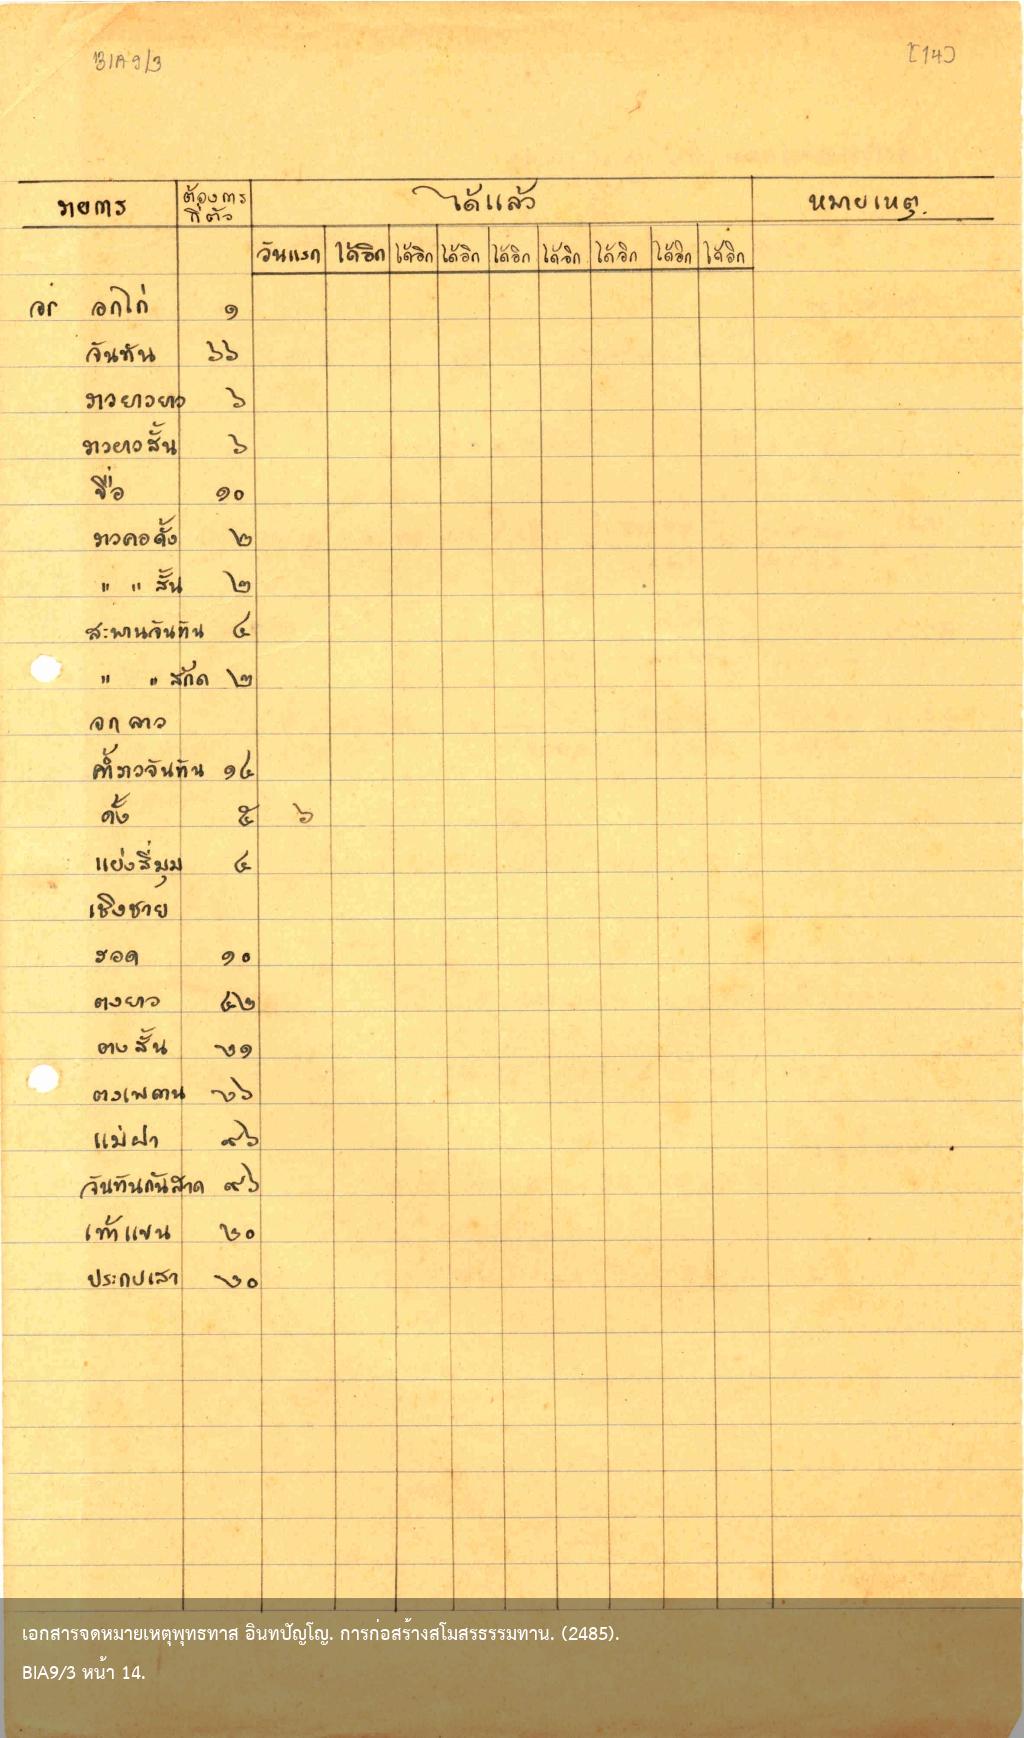 BIA 9/3 [14]
รายการ ต้องการ ได้แล้ว หมายเหตุ
กี่ตัว
วันแรก ได้อีก ได้อีก ได้อีก ได้อีก ได้อีก ได้อีก ได้อีก ได้อีก
อกไก่ ๑
จันทัน ๖๖
ราวยาวยาว ๖
ราวยาวสั้น ๖
ขื่อ ๑๐
ราวคอดั้ง ๒
" " สั้น ๒
สะพานจันทัน ๔
" " สกัด ๒
อกลาว
ค้ำราวจันทัน ๑๔
ดั้ง ๕ ๖
แย่งสี่มุม ๔
เชิงชาย
รอด ๑๐
ตงยาว ๔๒
ตงสั้น ๖๑
ตงเพดาน ๖๖
แม่ฝา ๙๖
จันทันกันสาด ๙๖
เท้าแขน ๒๐
ประกบเสา ๖๐
เอกสารจดหมายเหตุพุทธทาส อินทปัญโญ. การก่อสร้างสโมสรธรรมทาน. (2485).
BIA9/3 หน้า 14.